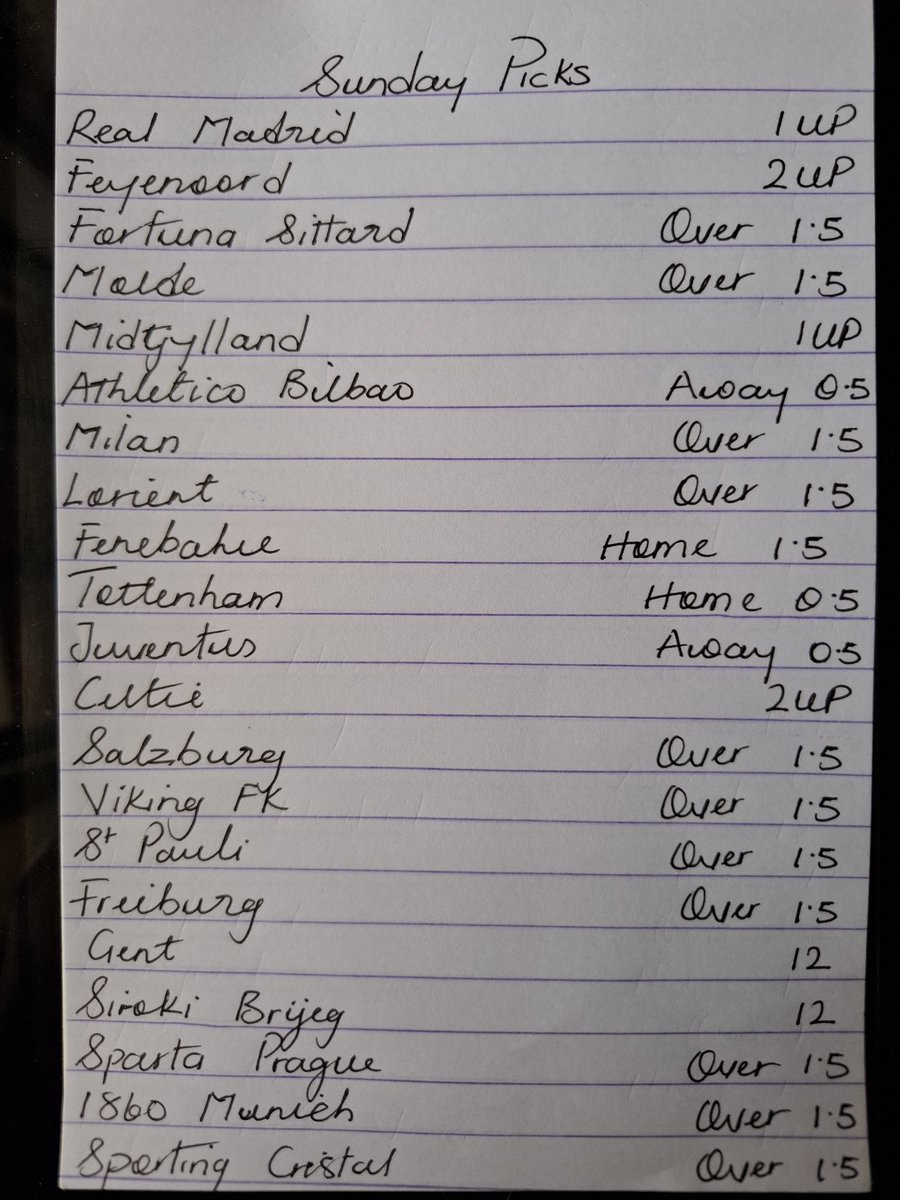 Sunday Picks
Real Madrid 1 UP
Feyenoord 2 UP
Fortuna Sittard Over 1.5
Molde Over 1.5
Midtjylland 1 UP
Athletico Bilbao Away 0.5
Milan Over 1.5
Lorient Over 1.5
Fenebahce Home 1.5
Tottenham Home 0.5
Juventus Away 0.5
Celtic 2 UP
Salzburg Over 1.5
Viking FK Over 1.5
St Pauli Over 1.5
Freiburg Over 1.5
Gent 12
Siroki Brijeg 12
Sparta Prague Over 1.5
1860 Munich Over 1.5
Sporting Cristal Over 1.5